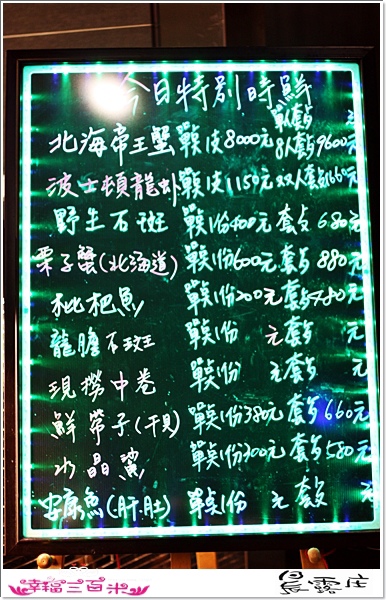 今日特別時鮮
單套 元
北海帝王蟹 單皮8000元 8人套9600元
波士頓龍蝦 單皮1150元 双人套1660元
野生石斑 單份400元 套 680元
栗子蟹(北海道) 單份600元 套 880元
枇杷魚 單份200元 套 480元
龍膽石斑 單份 元 套 元
現撈中卷 單份 元 套 元
鮮帶子(干貝) 單份380元 套 660元
水晶鯊 單份300元 套 580元
安康魚(肝.肚) 單份 元 套 元
幸福三百米
晨露庄